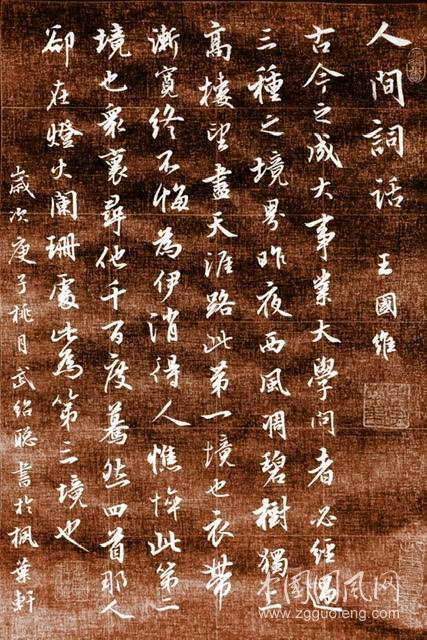 人間詞話 王國維
古今之成大事業大學问者必經過
三種之境界昨夜西風凋碧樹獨上
高樓望盡天涯路此第一境也衣帶
漸寬终不悔為伊消得人憔悴此第二
境也眾裏尋他千百度驀然回首那人
卻在燈火闌珊處此為第三境也
歲次庚子桃月武绍聪書於楓葉軒
中国国风网
www.zgguofeng.com